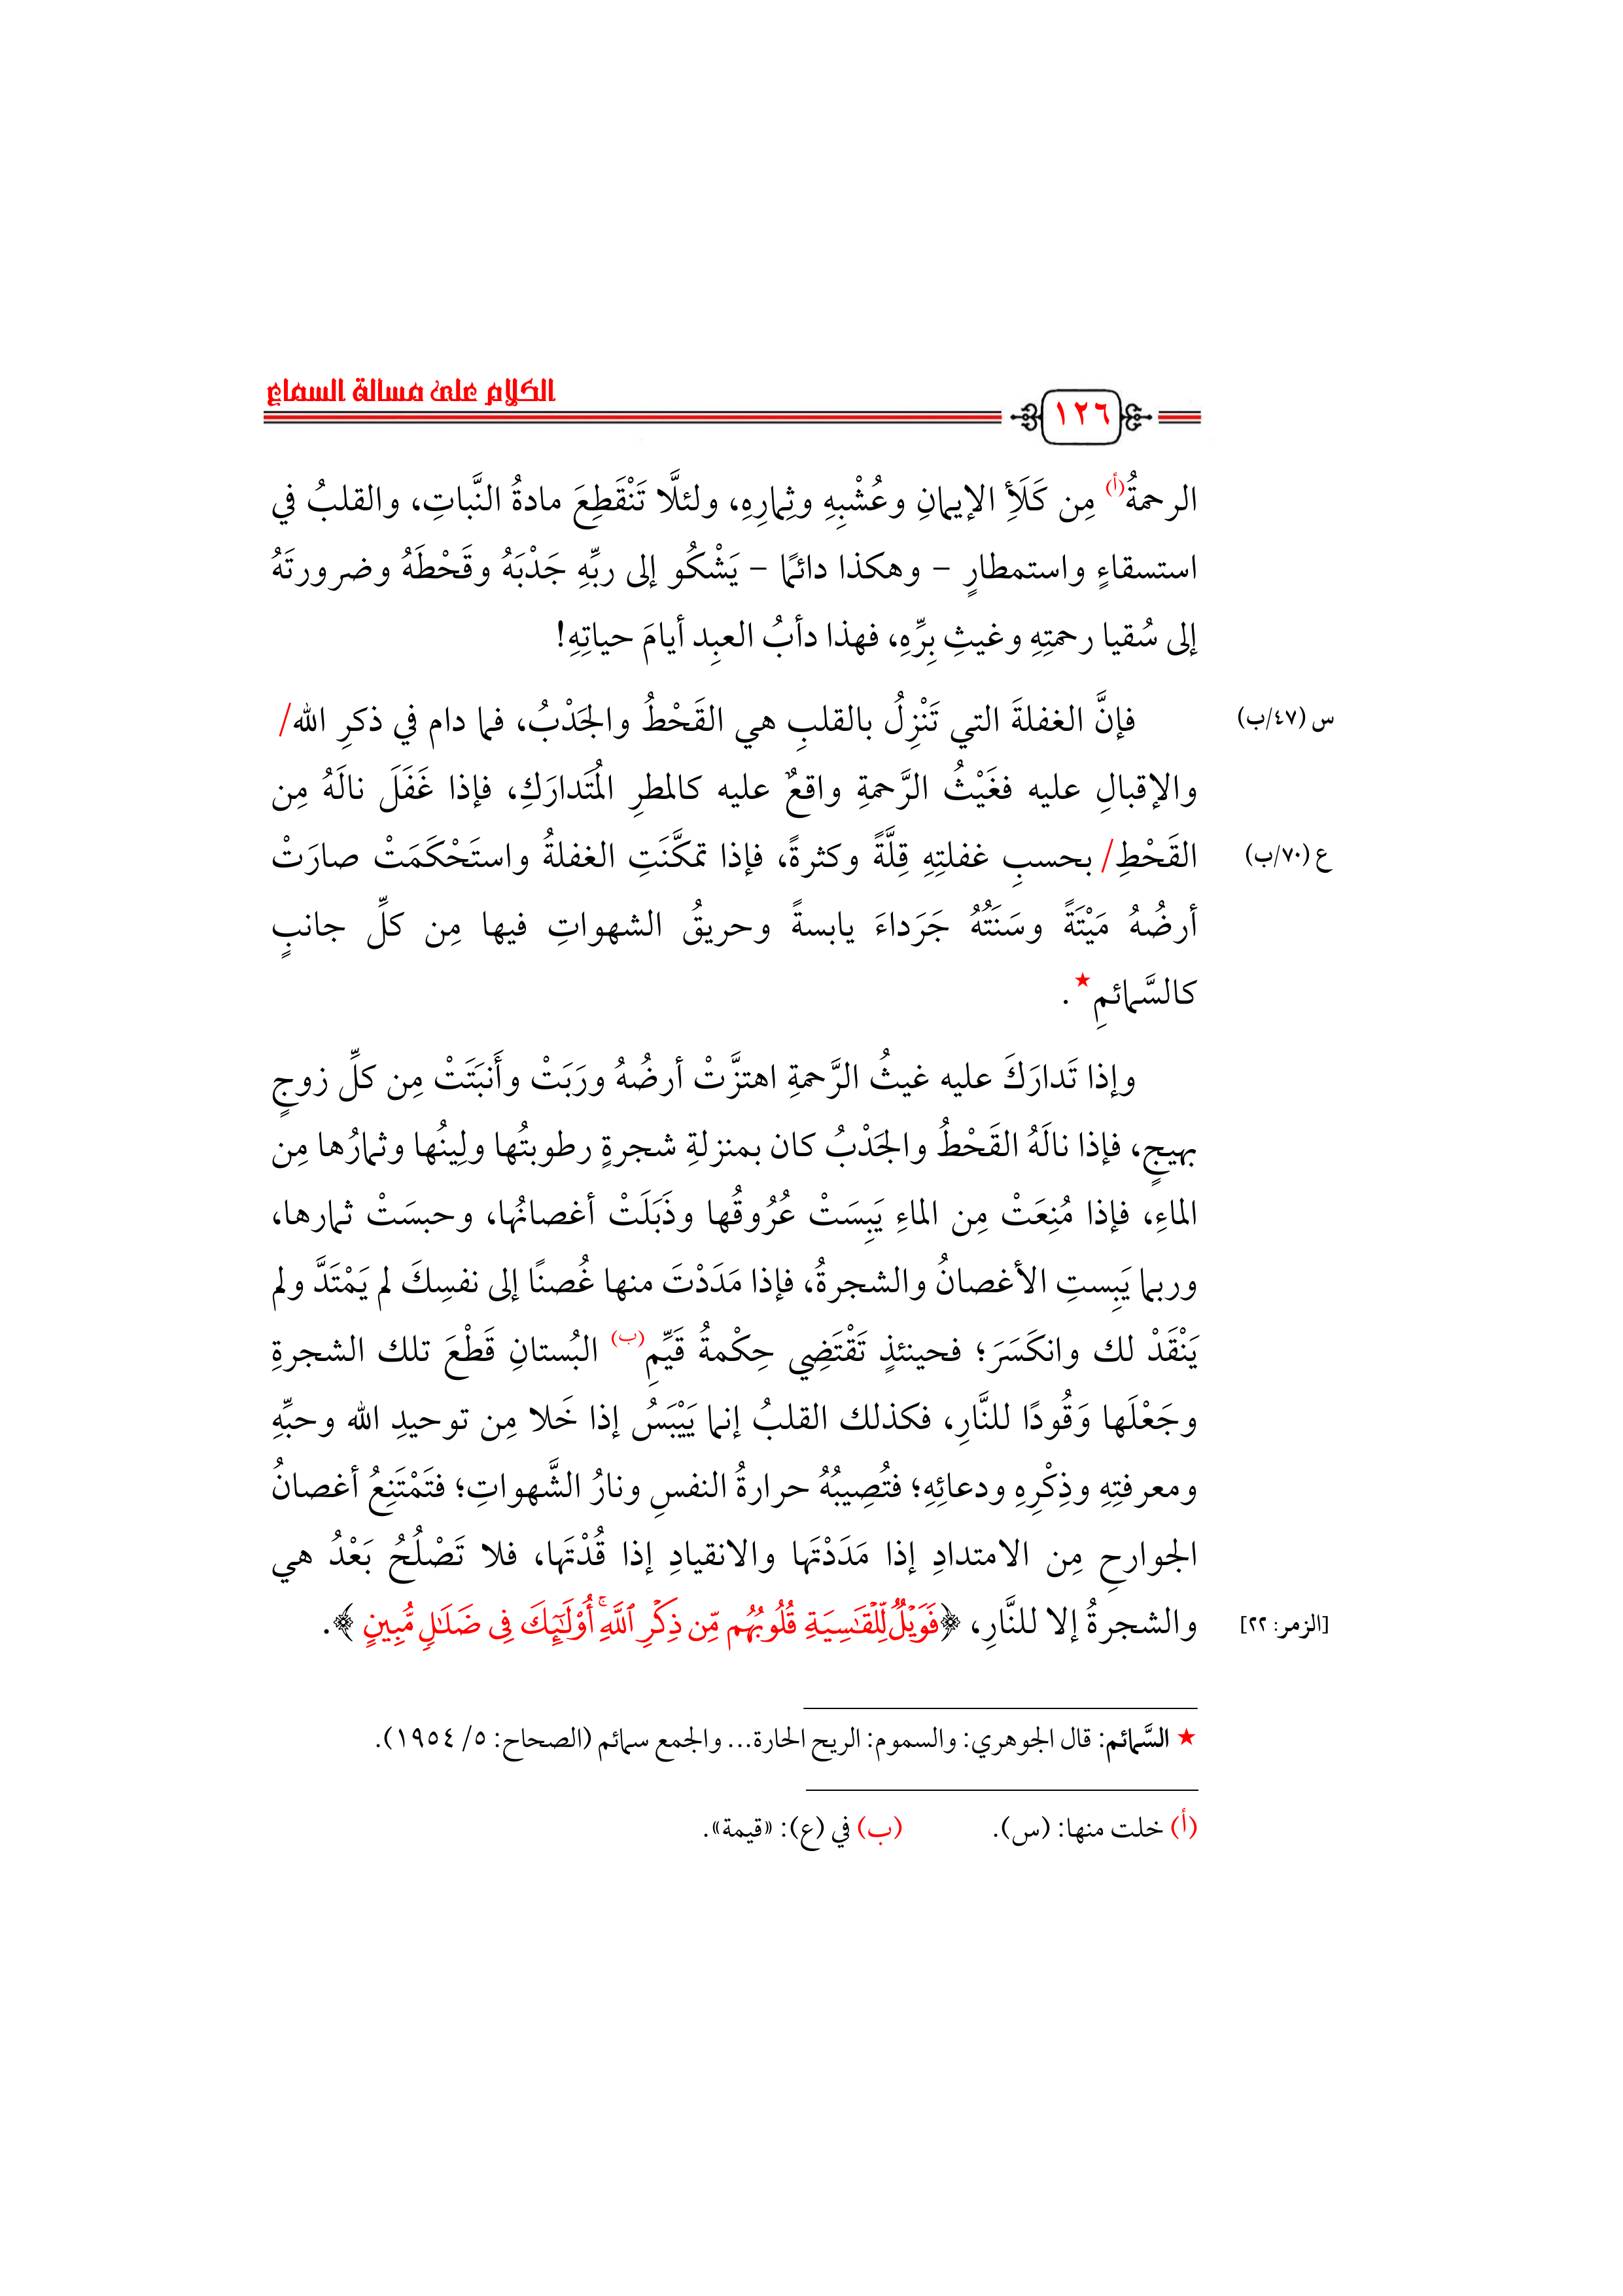 الكلام على مسألة السماع
١٢٦
الرحمةُ(أ) مِن كَلَأِ الإيمانِ وعُشْبِهِ وثِمارِهِ، ولئلَّا تَنْقَطِعَ مادةُ النَّباتِ، والقلبُ في
استسقاءٍ واستمطارٍ – وهكذا دائمًا – يَشْكُو إلى ربِّهِ جَدْبَهُ وقَحْطَهُ وضرورتَهُ
إلى سُقيا رحمتِهِ وغيثِ بِرِّهِ، فهذا دأبُ العبِد أيامَ حياتِهِ!
فإنَّ الغفلةَ التي تَنْزِلُ بالقلبِ هي القَحْطُ والجَدْبُ، فما دام في ذكرِ الله/
س (٤٧/ب)
والإقبالِ عليه فغَيْثُ الرَّحمةِ واقعٌ عليه كالمطرِ المُتَدارَكِ، فإذا غَفَلَ نالَهُ مِن
القَحْطِ/ بحسبِ غفلتِهِ قِلَّةً وكثرةً، فإذا تمكَّنَتِ الغفلةُ واستَحْكَمَتْ صارَتْ
ع (٧٠/ب)
أرضُهُ مَيْتَةً وسَنَتُهُ جَرَداءَ يابسةً وحريقُ الشهواتِ فيها مِن كلِّ جانبٍ
كالسَّمائمِ★.
وإذا تَدارَكَ عليه غيثُ الرَّحمةِ اهتزَّتْ أرضُهُ ورَبَتْ وأَنبَتَتْ مِن كلِّ زوجٍ
بهيجٍ، فإذا نالَهُ القَحْطُ والجَدْبُ كان بمنزلةِ شجرةٍ رطوبتُها ولِينُها وثمارُها مِن
الماءِ، فإذا مُنِعَتْ مِن الماءِ يَبِسَتْ عُرُوقُها وذَبَلَتْ أغصانُها، وحبسَتْ ثمارها،
وربما يَبِستِ الأغصانُ والشجرةُ، فإذا مَدَدْتَ منها غُصنًا إلى نفسِكَ لم يَمْتَدَّ ولم
يَنْقَدْ لك وانكَسَرَ؛ فحينئذٍ تَقْتَضِي حِكْمةُ قَيِّمِ(ب) البُستانِ قَطْعَ تلك الشجرةِ
وجَعْلَها وَقُودًا للنَّارِ، فكذلك القلبُ إنما يَيْبَسُ إذا خَلا مِن توحيدِ الله وحبِّهِ
ومعرفتِهِ وذِكْرِهِ ودعائِهِ؛ فتُصِيبُهُ حرارةُ النفسِ ونارُ الشَّهواتِ؛ فتَمْتَنِعُ أغصانُ
الجوارحِ مِن الامتدادِ إذا مَدَدْتَها والانقيادِ إذا قُدْتَها، فلا تَصْلُحُ بَعْدُ هي
والشجرةُ إلا للنَّارِ، ﴿فَوَيْلٌ لِّلْقَٰسِيَةِ قُلُوبُهُم مِّن ذِكْرِ ٱللَّهِ ۚ أُوْلَٰٓئِكَ فِى ضَلَٰلٍ مُّبِينٍ﴾.
[الزمر: ٢٢]
★ السَّمائم: قال الجوهري: والسموم: الريح الحارة... والجمع سمائم (الصحاح: ٥/ ١٩٥٤).
(أ) خلت منها: (س). (ب) في (ع): «قيمة».